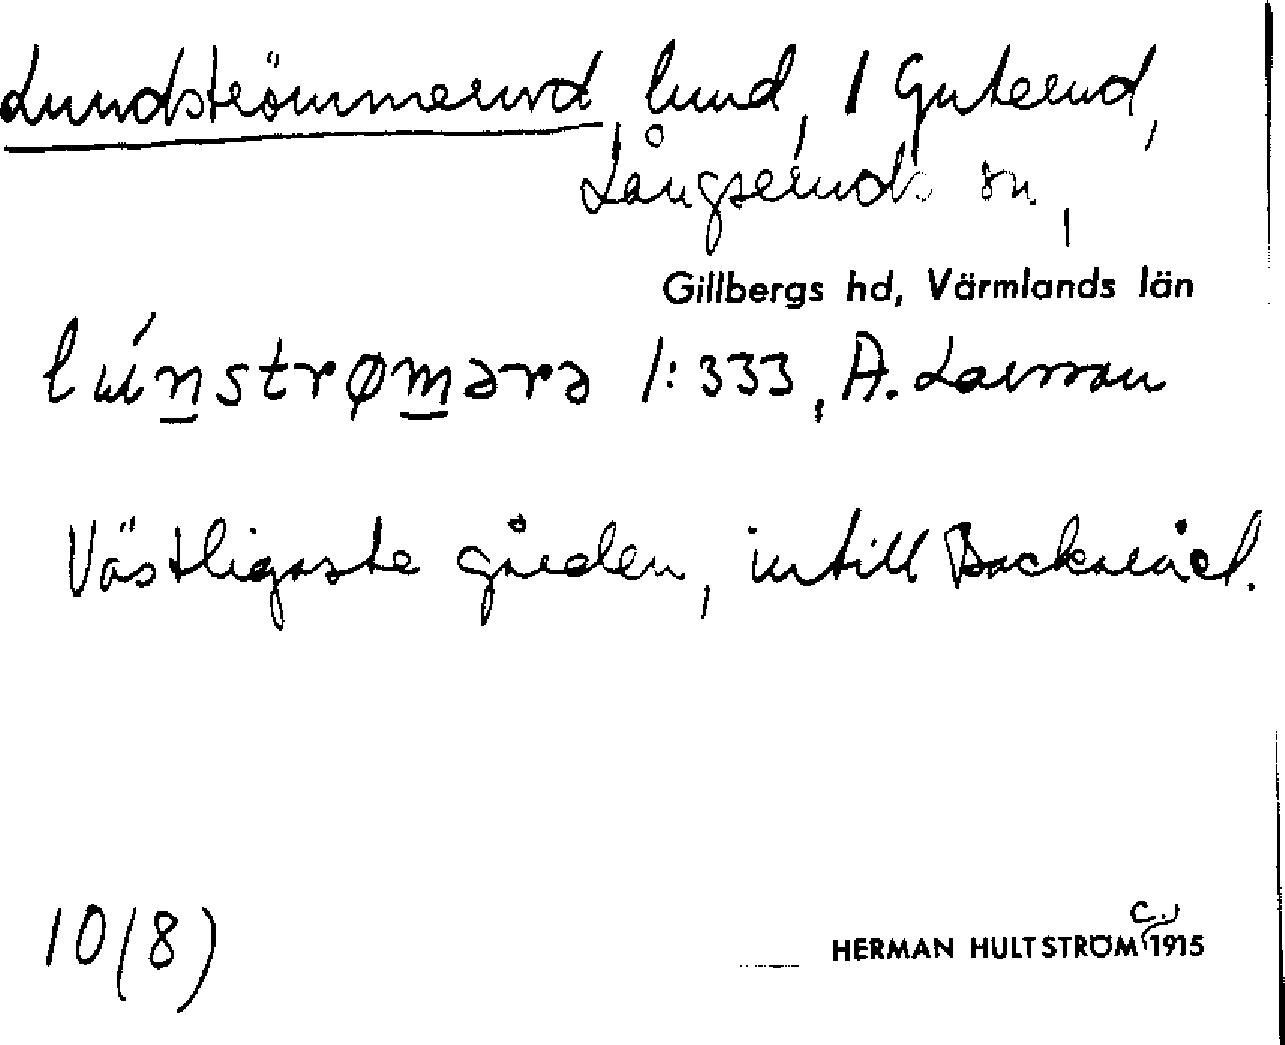 Lundströmmerud, lund, 1 Guterud,
Långseruds sn,
Gillbergs hd, Värmlands län
lúnstrømərə 1:333, A. Larsson
Västligaste gården, intill Backaråel.
10(8) HERMAN HULTSTRÖM c. 1915